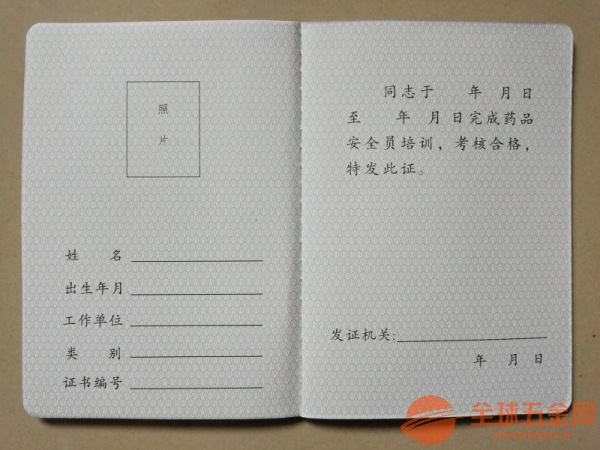 照
片
姓 名
出生年月
工作单位
类 别
证书编号
同志于 年 月 日
至 年 月 日完成药品
安全员培训，考核合格，
特发此证。
发证机关:
年 月 日
全球五金网